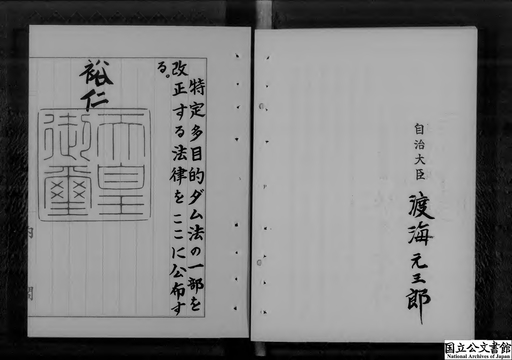 自治大臣 渡海元三郎
特定多目的ダム法の一部を
改正する法律をここに公布す
る。
裕仁
天皇
御璽
内閣
国立公文書館
National Archives of Japan